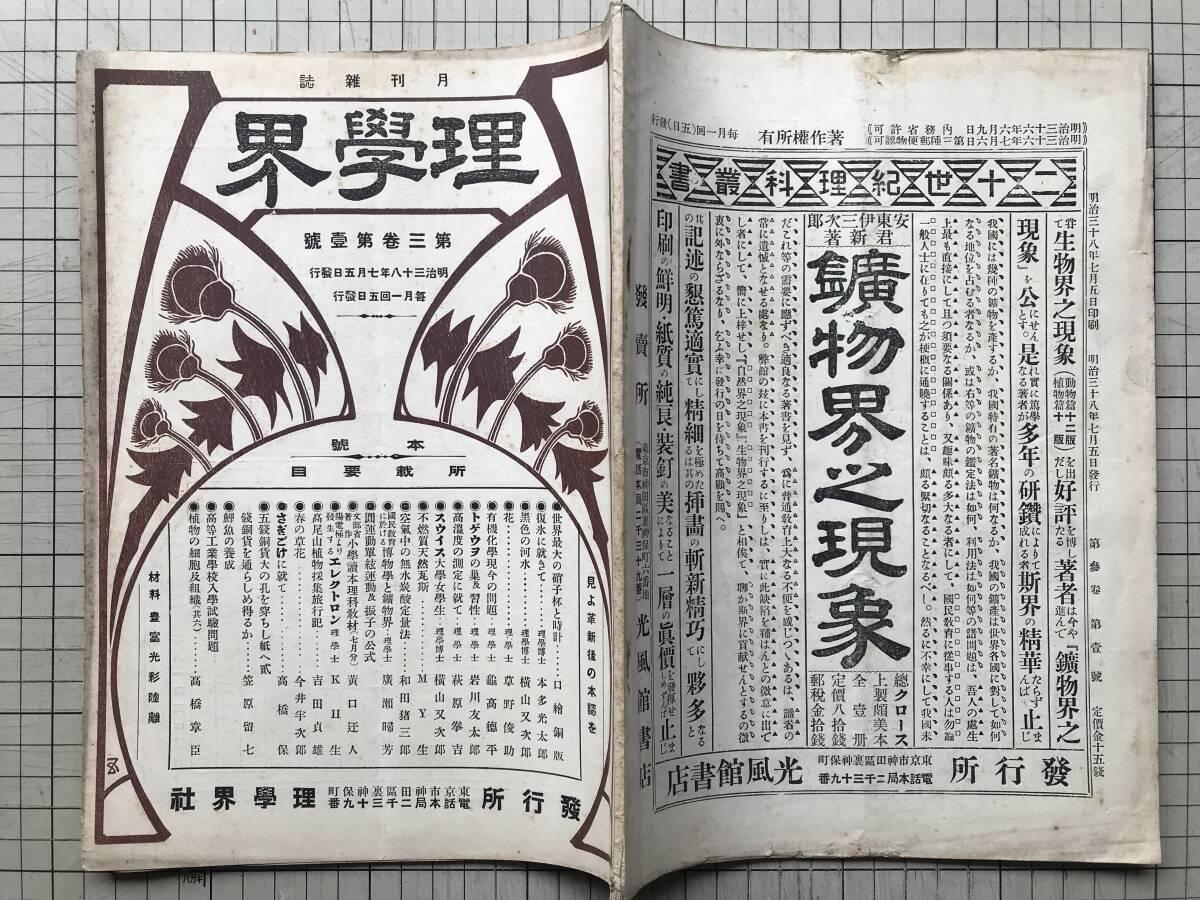 月刊雜誌
理學界
第三卷第壹號
明治三十八年七月五日發行
每月一回五日發行
本號
所載要目
見よ革新後の本誌を
●世界最大の硝子杯と時計……口繪銅版
●復氷に就きて……理學博士 本多光太郎
●黑色の河水……理學博士 橫山又次郎
●花……理學士 草野俊助
●有機化學現今の問題……理學士 龜高德平
●トタテの巢及習性……理學士 岩川友太郎
●高溫度の測定に就て……理學士 萩原拳吉
●スウイス大學女學生……理學博士 橫山又次郎
●不燃質天然瓦斯……M Y 生
●空氣中の無水炭酸定量法……和田猪三郎
●國民敎育に於ける博物學と鑛物界……理學士 廣瀨歸芳
●圓運動單絃運動及振子の公式
●文部省著作小學讀本理科敎材(七月分)……黃口迂人
●陽電極より發生するエレクトロン……理學士 K H 生
●高尾山植物採集旅行記……吉田貞雄
●春の草花……今井半次郎
●さぎごけに就て……高橋保
●五錢銅貨大の孔を穿ちし紙へ貳錢銅貨を通らしめ得るか……笠原留七
●鯉魚の養成
●高等工業學校入學試驗問題
●植物の細胞及組織(其六)……高橋章臣
材料豊富光彩陸離
發行所
東京市神田區裏神保町
電話本局二千三十九番
理學界社
發賣所
光風館書店
明治三十六年六月九日內務省許可
明治三十六年七月六日第三種郵便物認可
著作權所有
每月一回(五日)發行
明治三十八年七月五日印刷 明治三十八年七月五日發行 第參卷第壹號 定價金十五錢
二十世紀理科叢書
安東伊三次郎君新著
鑛物界之現象
總クロース
上製頗美本
全壹册
定價八拾錢
郵稅金拾錢
曩に生物界之現象(動物篇十二版 植物篇十版)を出だし好評を博し著者は今や進んで『鑛物界之
現象』を公にせんとす。是れ實に篤學なる著者が多年の研鑽によりて成れる者斯界の精華たらずんば止まじ
我國には幾種の鑛物を產するか、我國特有の著名鑛物は何なるか、我國の鑛產は世界各國に對して如何
なる地位を占むる者なるか、或は右等の鑛物の鑑定法は如何、利用法は如何等の諸問題は、吾人の處生
上最も直接にして且つ須要なる關係あり、又趣味頗る多大なる者にして、國民敎育に從事する人は勿論
一般人士に在りても之が梗槪に通曉することは、頗る緊切なることなるべし。然るに不幸にして我國未
だこれ等の需要に應ずべき適良なる著書を見ず、爲に普通敎育上大なる不便を感じつゝあるは、識者の
常に遺憾となせる處なり。弊館の玆に本書を刊行するに至りしは、實に此缺陷を補はんとの微意に出で
し者にして、嚮に上梓せし『自然界之現象』『生物界之現象』と相俟て、聊か斯界に貢獻せんとするの微
衷に外ならざるなり、乞ふ幸に發行の日を待ちて高顧を賜へ。
其の記述の懇篤適實にし精細を極めたるは其の挿畫の斬新精巧にし夥多なる
印刷の鮮明紙質の純良裝釘の美なると一層の眞價を發揮せしめずんば止まじ
發行所
東京市神田區裏神保町
電話本局二千三十九番
光風館書店